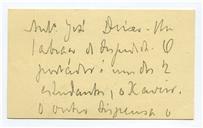 Ant. José Dias. Um
abraço de despedida. O
portador é um dos 2
estudantes, o Xavier.
O outro dispensa o